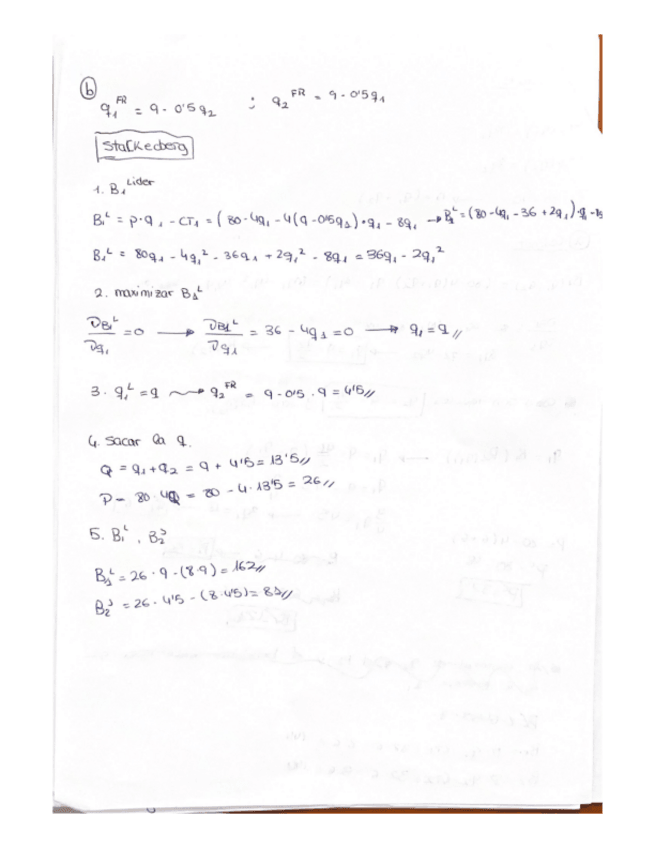 b
q₁ᶠᴿ = 9 - 0'5q₂ ; q₂ᶠᴿ = 9 - 0'5q₁
Stackedberg
1. B₁ᴸⁱᵈᵉʳ
B₁ᴸ = P·q₁ - CT₁ = (80 - 4q₁ - 4(9 - 0'5q₁)·q₁ - 8q₁ → B₁ᴸ = (80 - 4q₁ - 36 + 2q₁)·q₁ - 8q
B₁ᴸ = 80q₁ - 4q₁² - 36q₁ + 2q₁² - 8q₁ = 36q₁ - 2q₁²
2. maximizar B₁ᴸ
∂B₁ᴸ/∂q₁ = 0 → ∂B₁ᴸ/∂q₁ = 36 - 4q₁ = 0 → q₁ = 9//
3. q₁ᴸ = 9 → q₂ᶠᴿ = 9 - 0'5 · 9 = 4'5//
4. Sacar la q.
Q = q₁ + q₂ = 9 + 4'5 = 13'5//
P = 80 - 4Q = 80 - 4 · 13'5 = 26//
5. B₁ᴸ, B₂ˢ
B₁ᴸ = 26 · 9 - (8·9) = 162//
B₂ˢ = 26 · 4'5 - (8·4'5) = 81//